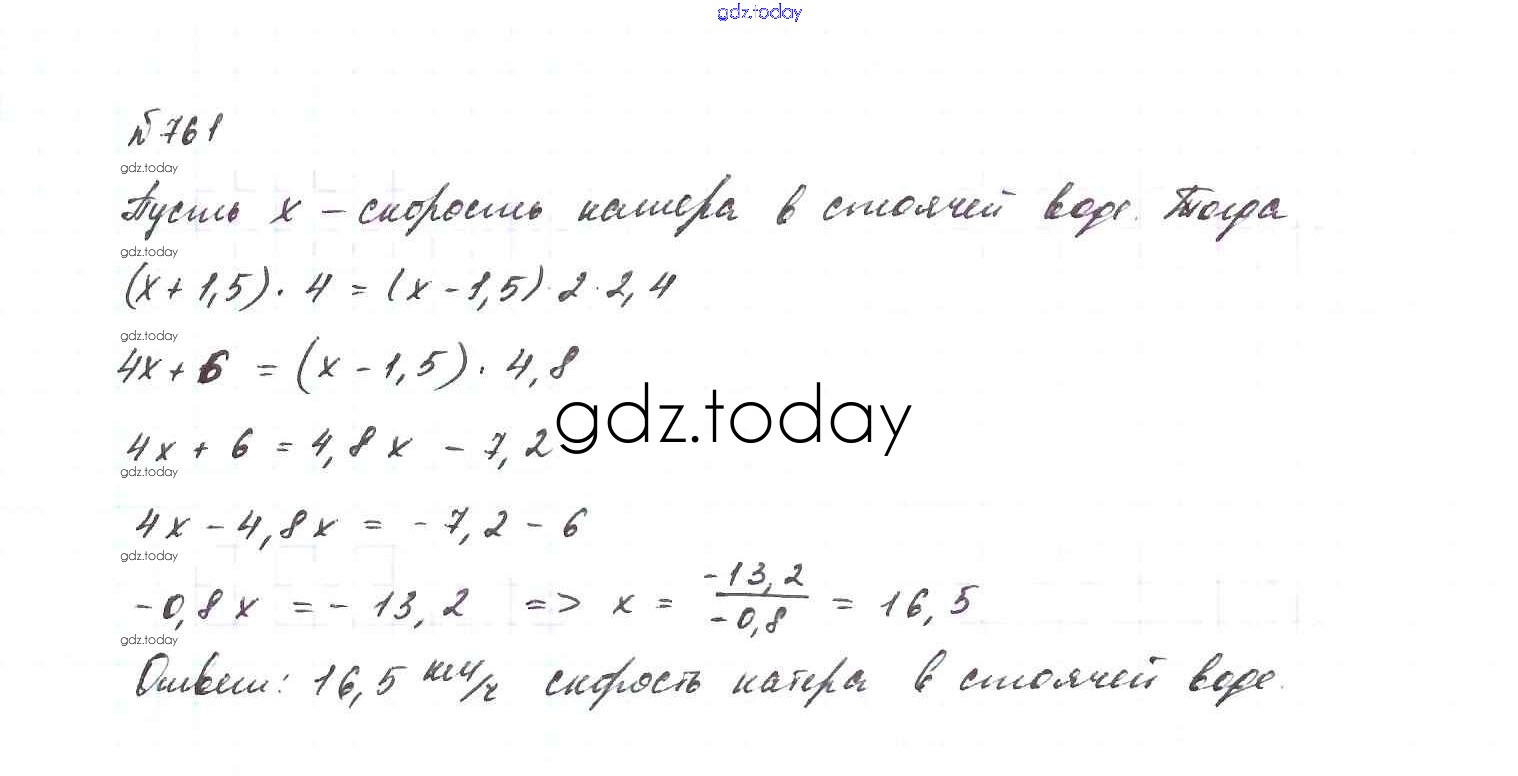 gdz.today
№ 761
gdz.today
Пусть х – скорость катера в стоячей воде. Тогда
gdz.today
(х + 1,5) · 4 = (х - 1,5) · 2 · 2,4
gdz.today
4х + 6 = (х - 1,5) · 4,8
gdz.today
4х + 6 = 4,8х - 7,2
gdz.today
4х - 4,8х = -7,2 - 6
gdz.today
-0,8х = -13,2 => х = -13,2/-0,8 = 16,5
gdz.today
Ответ: 16,5 км/ч скорость катера в стоячей воде.